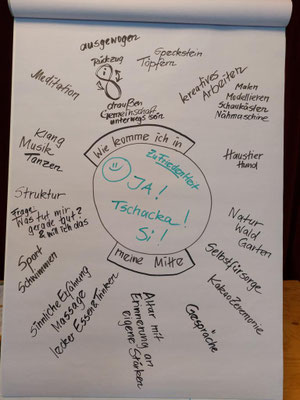 ausgewogen
Rückzug
draußen
Gemeinschaft
unterwegs sein
Speckstein
Töpfern
kreatives
Arbeiten
Malen
Modellieren
Schaukästen
Nähmaschine
Haustier
Hund
Natur
Wald
Garten
Selbstfürsorge
KakaoZeremonie
Gespräche
Altar mit
Erinnerung an
eigene Stärken
Sinnliche Erfahrung
Massage
lecker Essen & Trinken
Sport
Schwimmen
Struktur
Frage:
Was tut mir
gerade gut?
& will ich das
Klang
Musik
Tanzen
Meditation
Wie komme ich in
Zufriedenheit
JA!
Tschacka!
Si!
meine Mitte